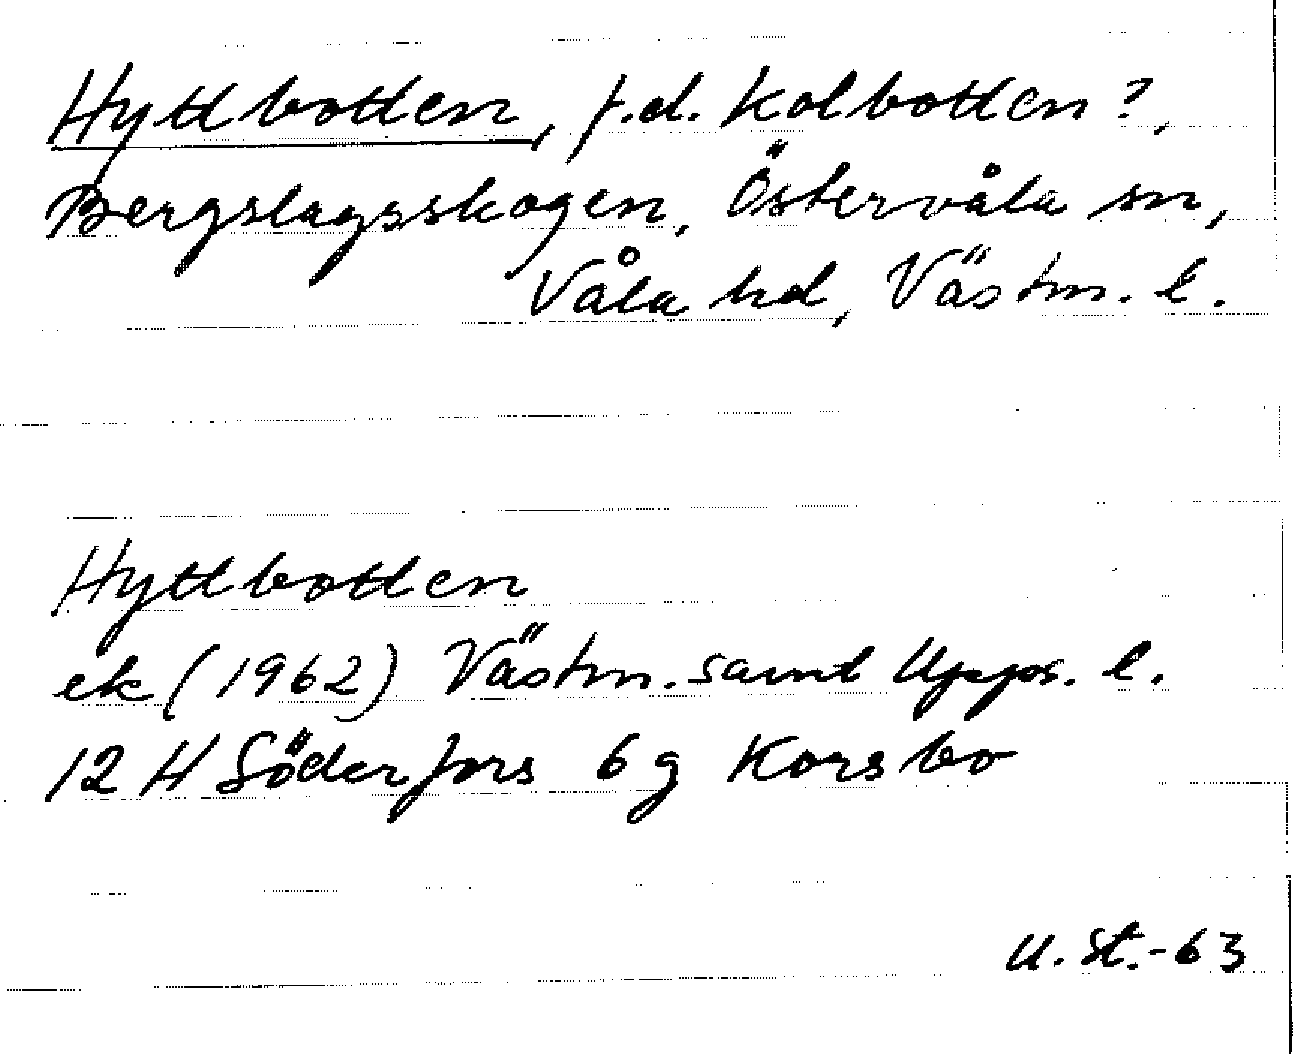 Hyttbotten, f.d. Kolbotten?,
Bergslagsskogen, Östervåla sn,
Våla hd, Västm. l.
Hyttbotten
ek (1962) Västm. samt Upps. l.
12 H Söderfors 6 g Korsbo
U. St.-63